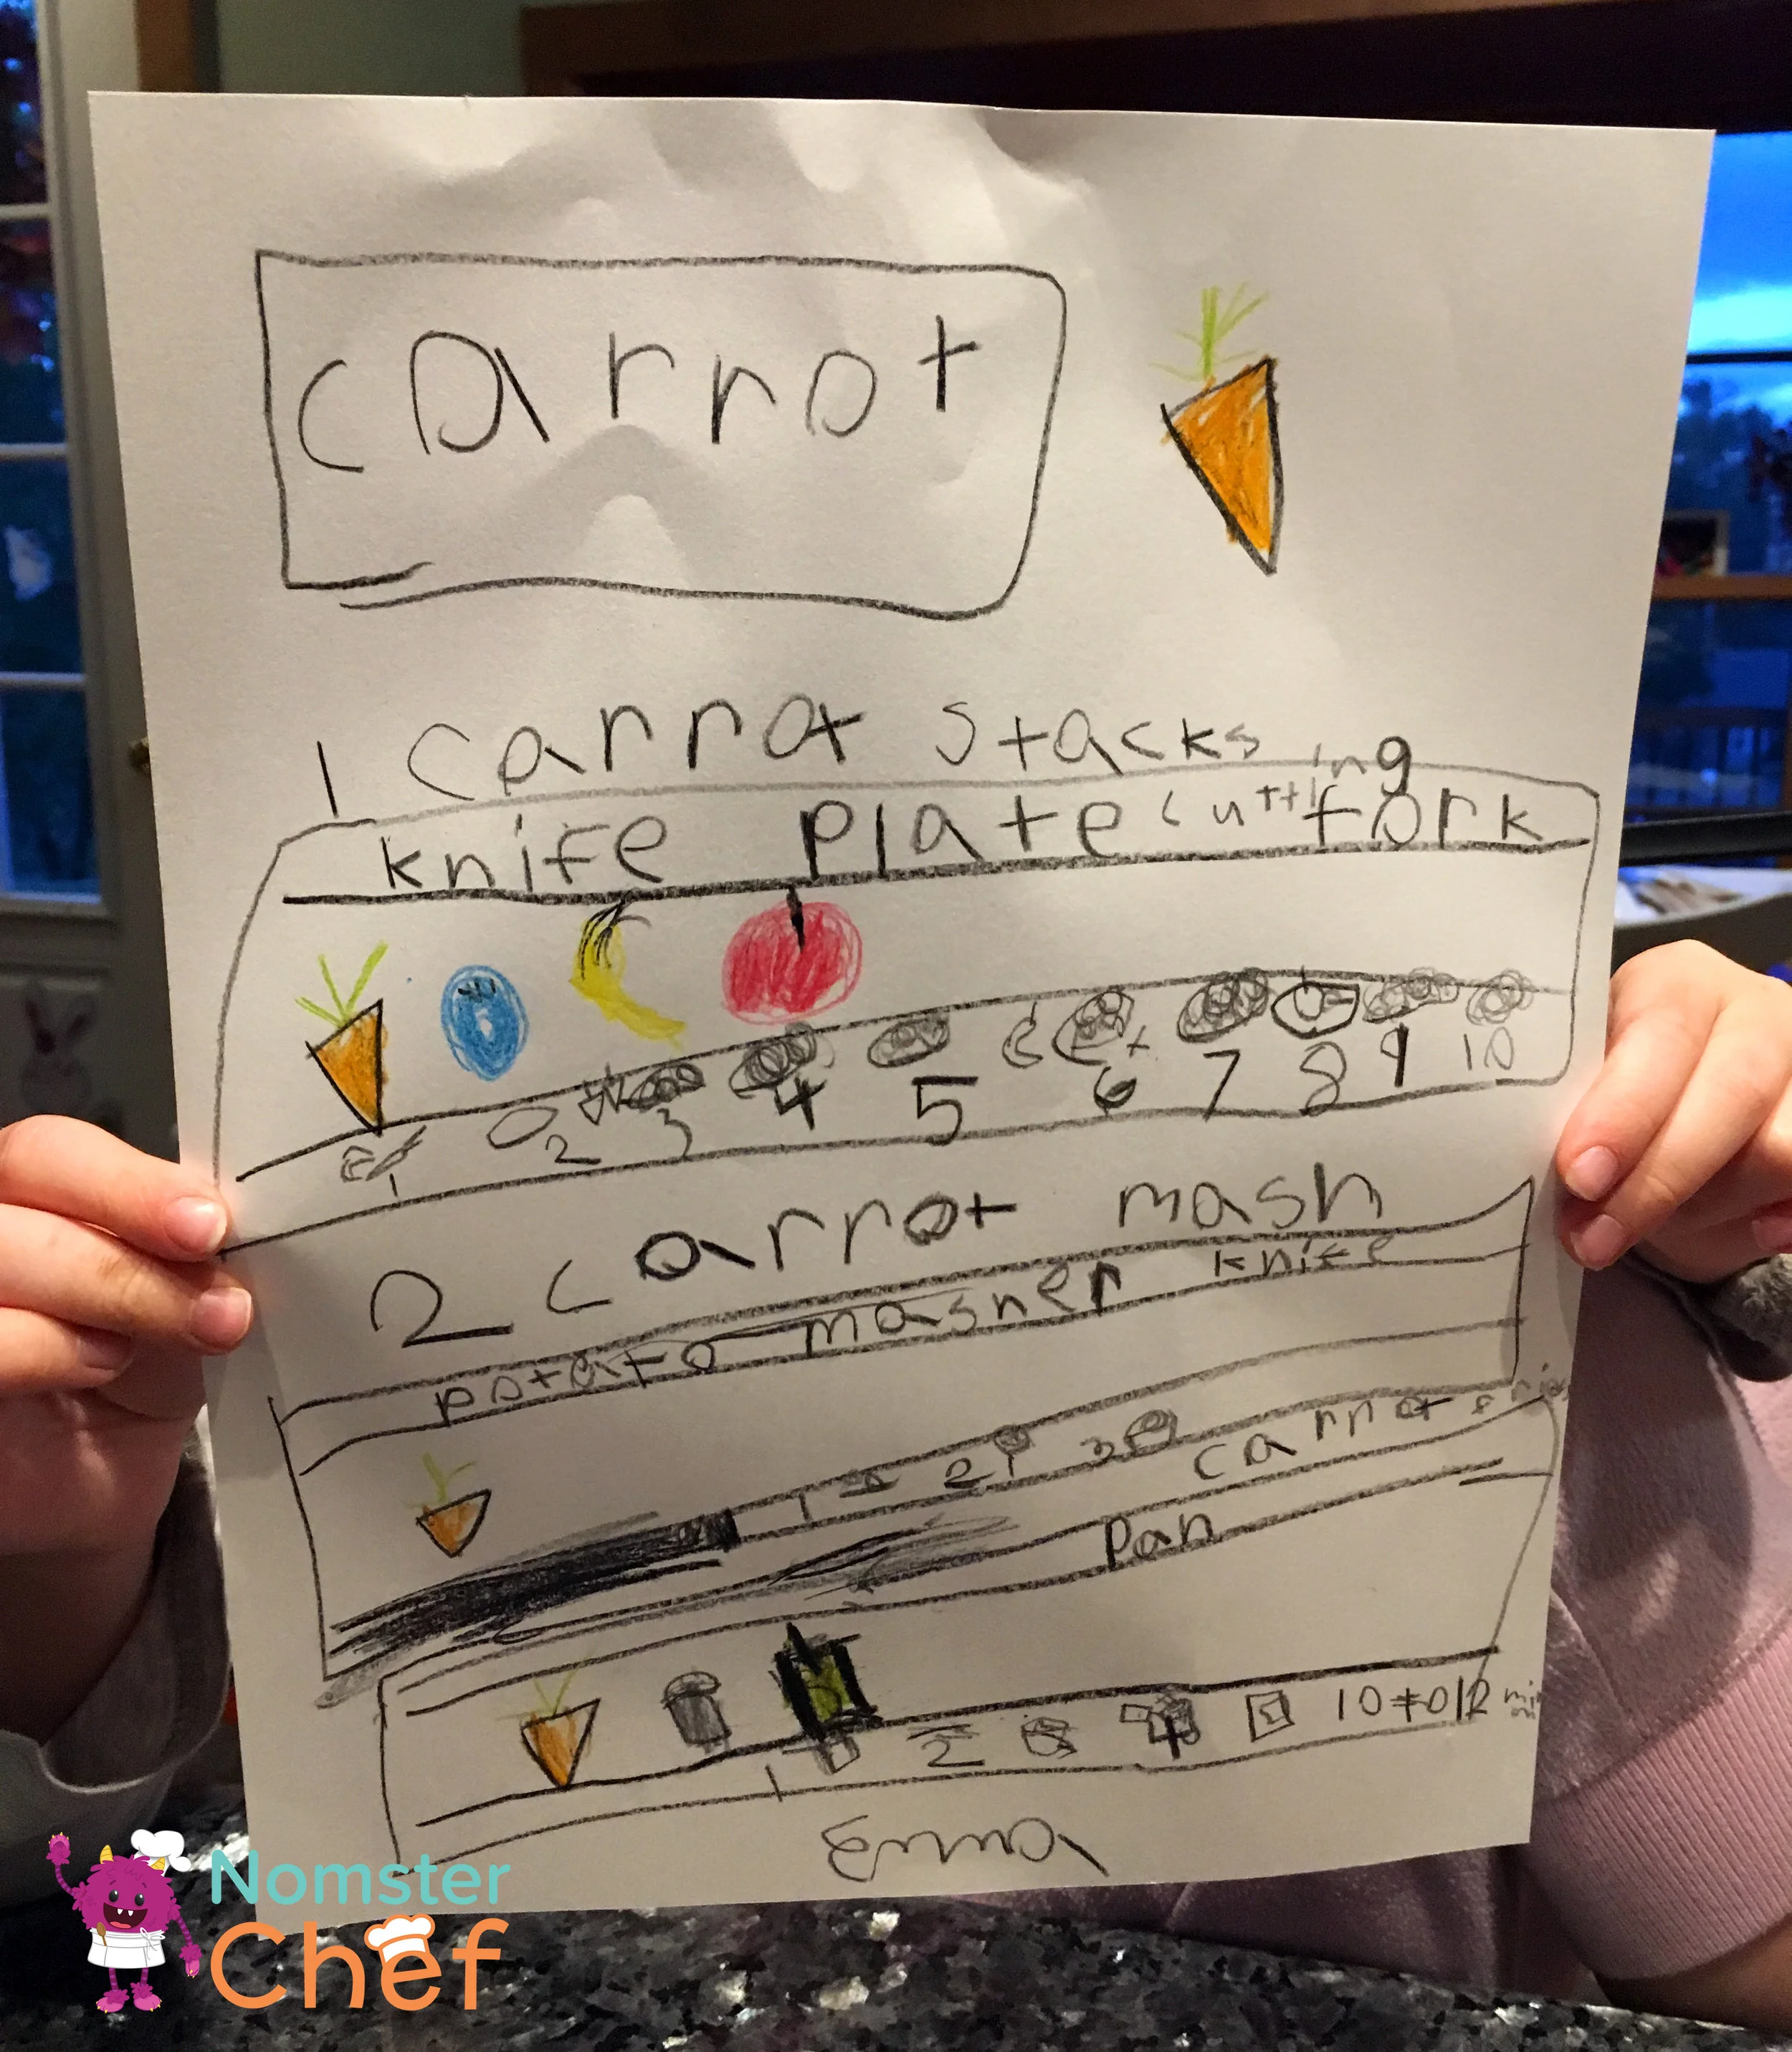 carrot
1 carrot stacks
knife plate cutting fork
1 2 3 4 5 6 7 8 9 10
2 carrot mash
potato masher knife
1 2 3
carrot
pan
1 2 4 10 12 min
Emma
Nomster
Chef